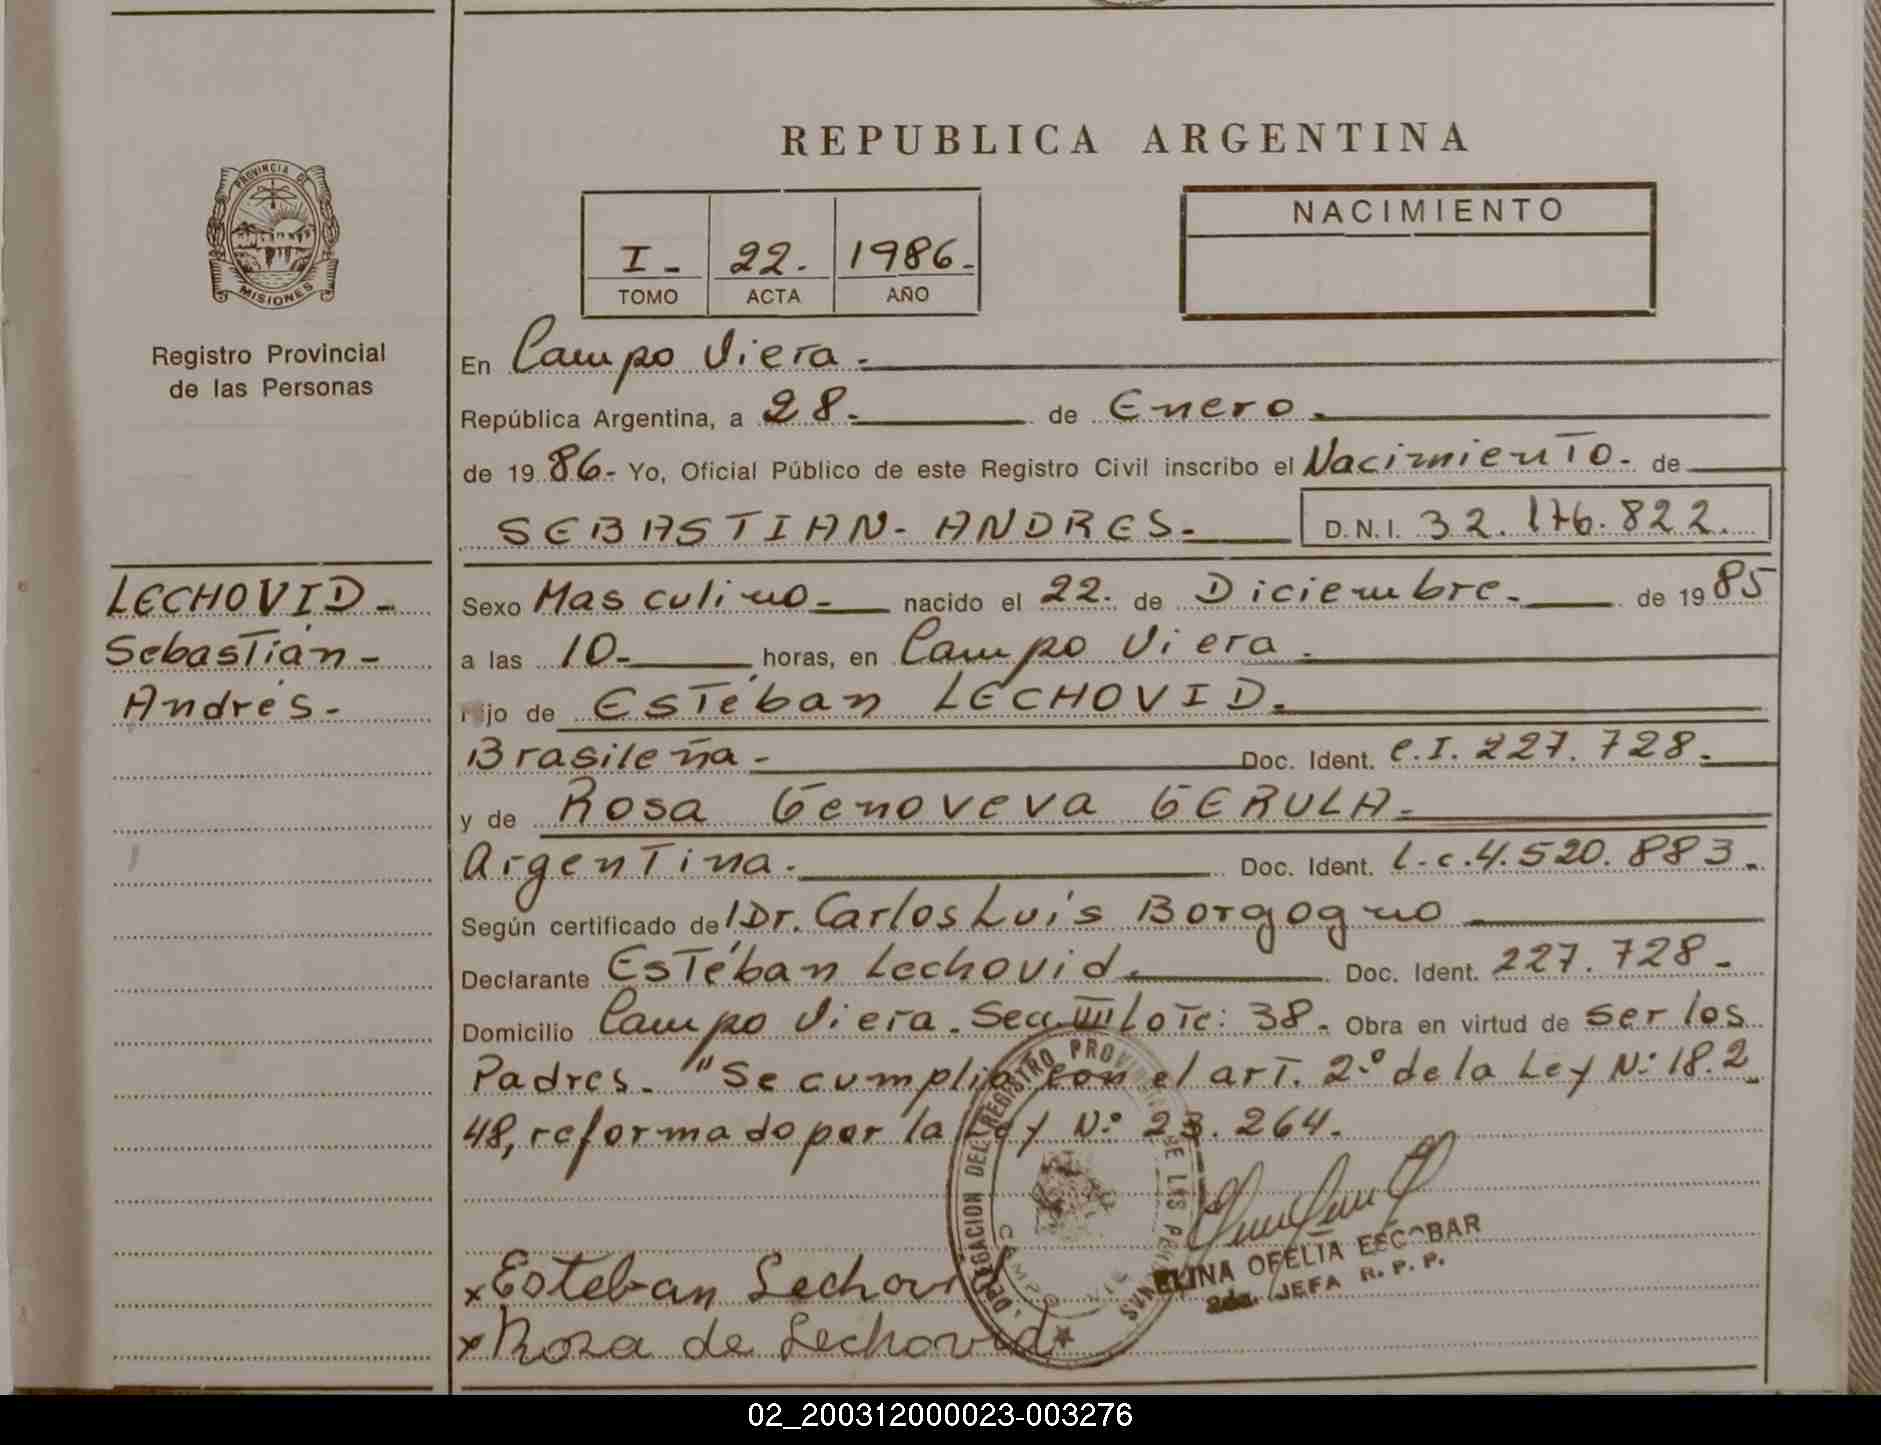 REPUBLICA ARGENTINA
PROVINCIA DE
MISIONES
Registro Provincial
de las Personas
I- 22- 1986-
TOMO ACTA AÑO
NACIMIENTO
En Campo Viera -
República Argentina, a 28- de Enero -
de 19 86- Yo, Oficial Público de este Registro Civil inscribo el Nacimiento- de
SEBASTIAN- ANDRES- D.N.I. 32.176.822.
LECHOVID-
Sebastián-
Andrés-
Sexo Masculino- nacido el 22- de Diciembre- de 19 85
a las 10- horas, en Campo Viera -
Hijo de Estéban LECHOVID-
Brasileña- Doc. Ident. C.I. 227.728-
y de Rosa Genoveva GERULA-
Argentina- Doc. Ident. L.c.4.520.883-
Según certificado de Dr. Carlos Luis Borgogno
Declarante Estéban Lechovid- Doc. Ident. 227.728-
Domicilio Campo Viera. Secc. III Lote: 38- Obra en virtud de ser los
Padres- "Se cumplió con el art. 2.º de la Ley N: 18.2
48, reformado por la Ley Nº 23.264.
DELEGACION DEL REGISTRO PROVINCIAL DE LAS PERSONAS
ELINA OFELIA ESCOBAR
2da. JEFA R.P.P.
x Esteban Lechovid
x Rosa de Lechovid
02_200312000023-003276